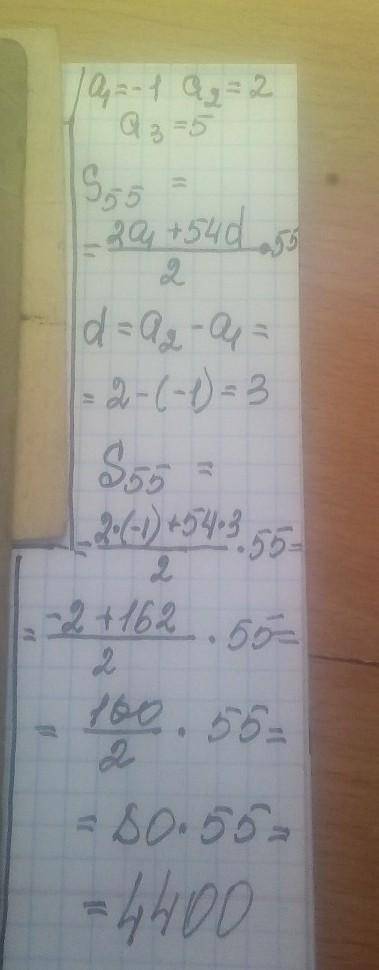 a₁=-1 a₂=2
a₃=5
S₅₅ =
= (2a₁+54d)/2 · 55
d = a₂ - a₁ =
= 2-(-1) = 3
S₅₅ =
= (2·(-1)+54·3)/2 · 55 =
= (-2+162)/2 · 55 =
= 160/2 · 55 =
= 80·55 =
= 4400